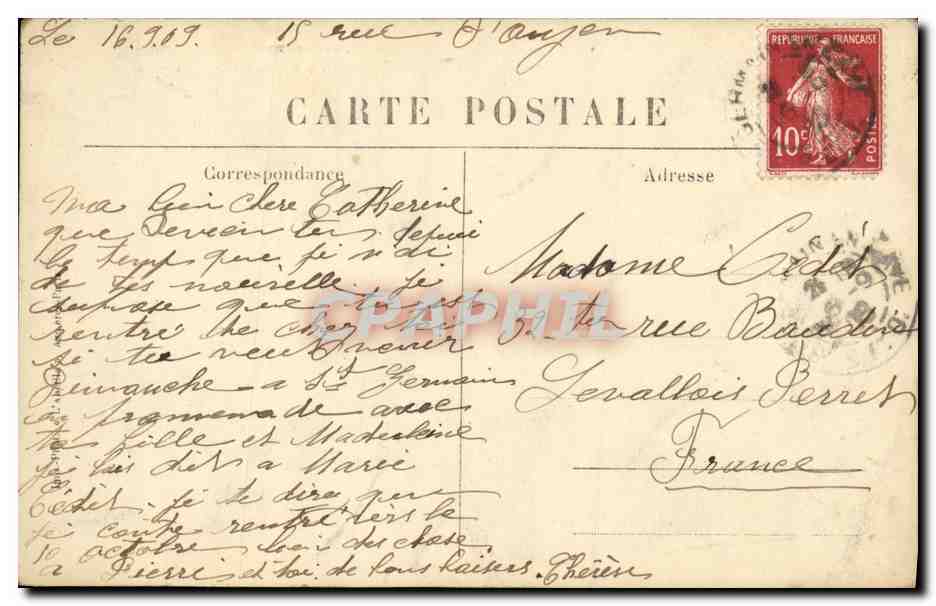 Le 16.9.09. 15 rue d'
REPUBLIQUE FRANCAISE
10c
POSTES
CARTE POSTALE
Correspondance
Adresse
Ma bien chere Catherine
que devien tu depui
le temps que je n'di
de tes nouvelle. je
supose que tu est
rentré de chez toi
si tu veux venir
Dimanche a St Germain
en promenade avec
ta fille et Madeleine
je lais dit a Marie
Cédet. je te dire que
je conte rentré vers le
10 octobre bien des chose
a Pierre et toi de bons baisers. Thérèse
Madame Cédet
59 ter rue Baudin
Levallois Perret
France
CPAPHIL